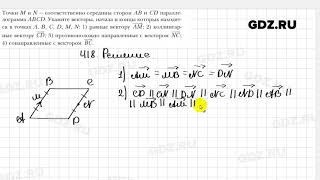 Точки M и N — соответственно середины сторон AB и CD паралле-
лограмма ABCD. Укажите векторы, начала и концы которых находят-
ся в точках A, B, C, D, M, N: 1) равные вектору AM; 2) коллинеар-
ные вектору CD; 3) противоположно направленные с вектором NC;
4) сонаправленные с вектором BC.
GDZ.RU
418 Решение
1) AM = MB = NC = DN
2) CD || CN || DN || NC || ND || AB ||
|| MB || AM ||
B C
M N
A D
GDZ.RU